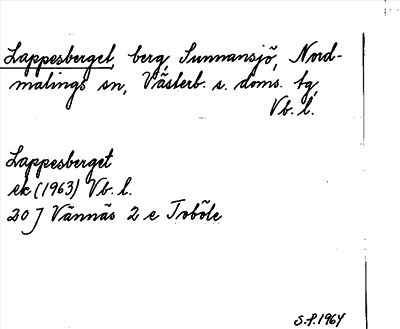 Lappesberget, berg, Sunnansjö, Nord-
malings sn, Västerb. s. doms. tg,
Vb. l.
Lappesberget
ek (1963) Vb. l.
20 J Vännäs 2 e Toböle
S.P. 1964